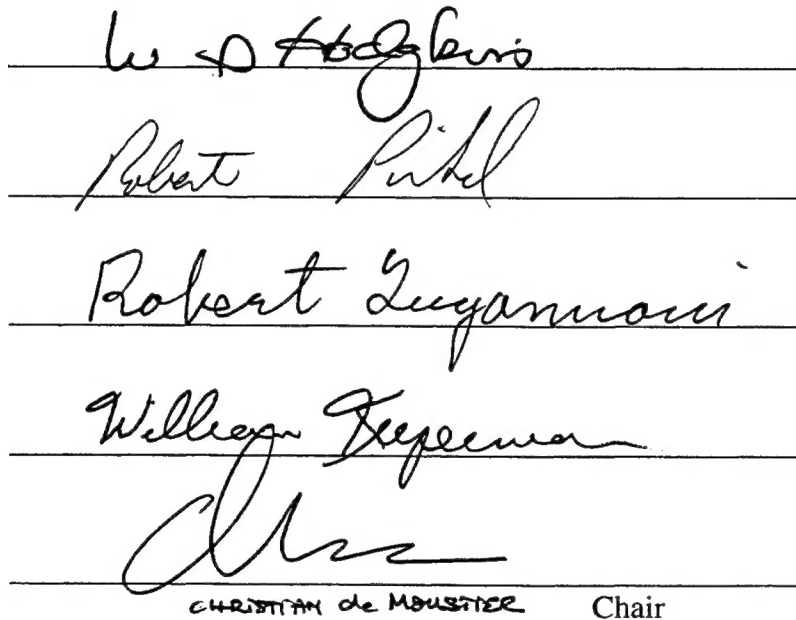 W S Hodgkiss
Robert Pinkel
Robert
William Kuperman
CHRISTIAN de MOUSTIER Chair